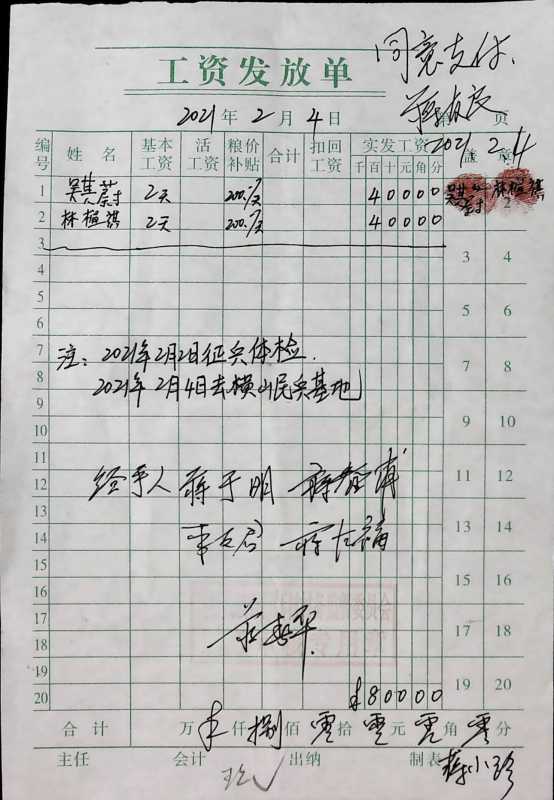 同意支付.
工资发放单
2021年2月4日 页
2021.2.4
编号 姓名 基本工资 活工资 粮价补贴 合计 扣回工资 实发工资 千百十元角分 盖章
1 2天 200./天 40000
2 林植祺 2天 200./天 40000 林植祺
3 3 4
4
5 5 6
6
7 7 8
注：2021年2月2日征兵体检.
8
2021年2月4日去横山民兵基地
9 9 10
10
11 11 12
12
经手人 蒋于明
13 13 14
14
15 15 16
16
17 17 18
18
19 19 20
20 ¥80000
合计 万 仟捌佰零拾零元零角零分
主任 会计 出纳 制表 蒋小珍